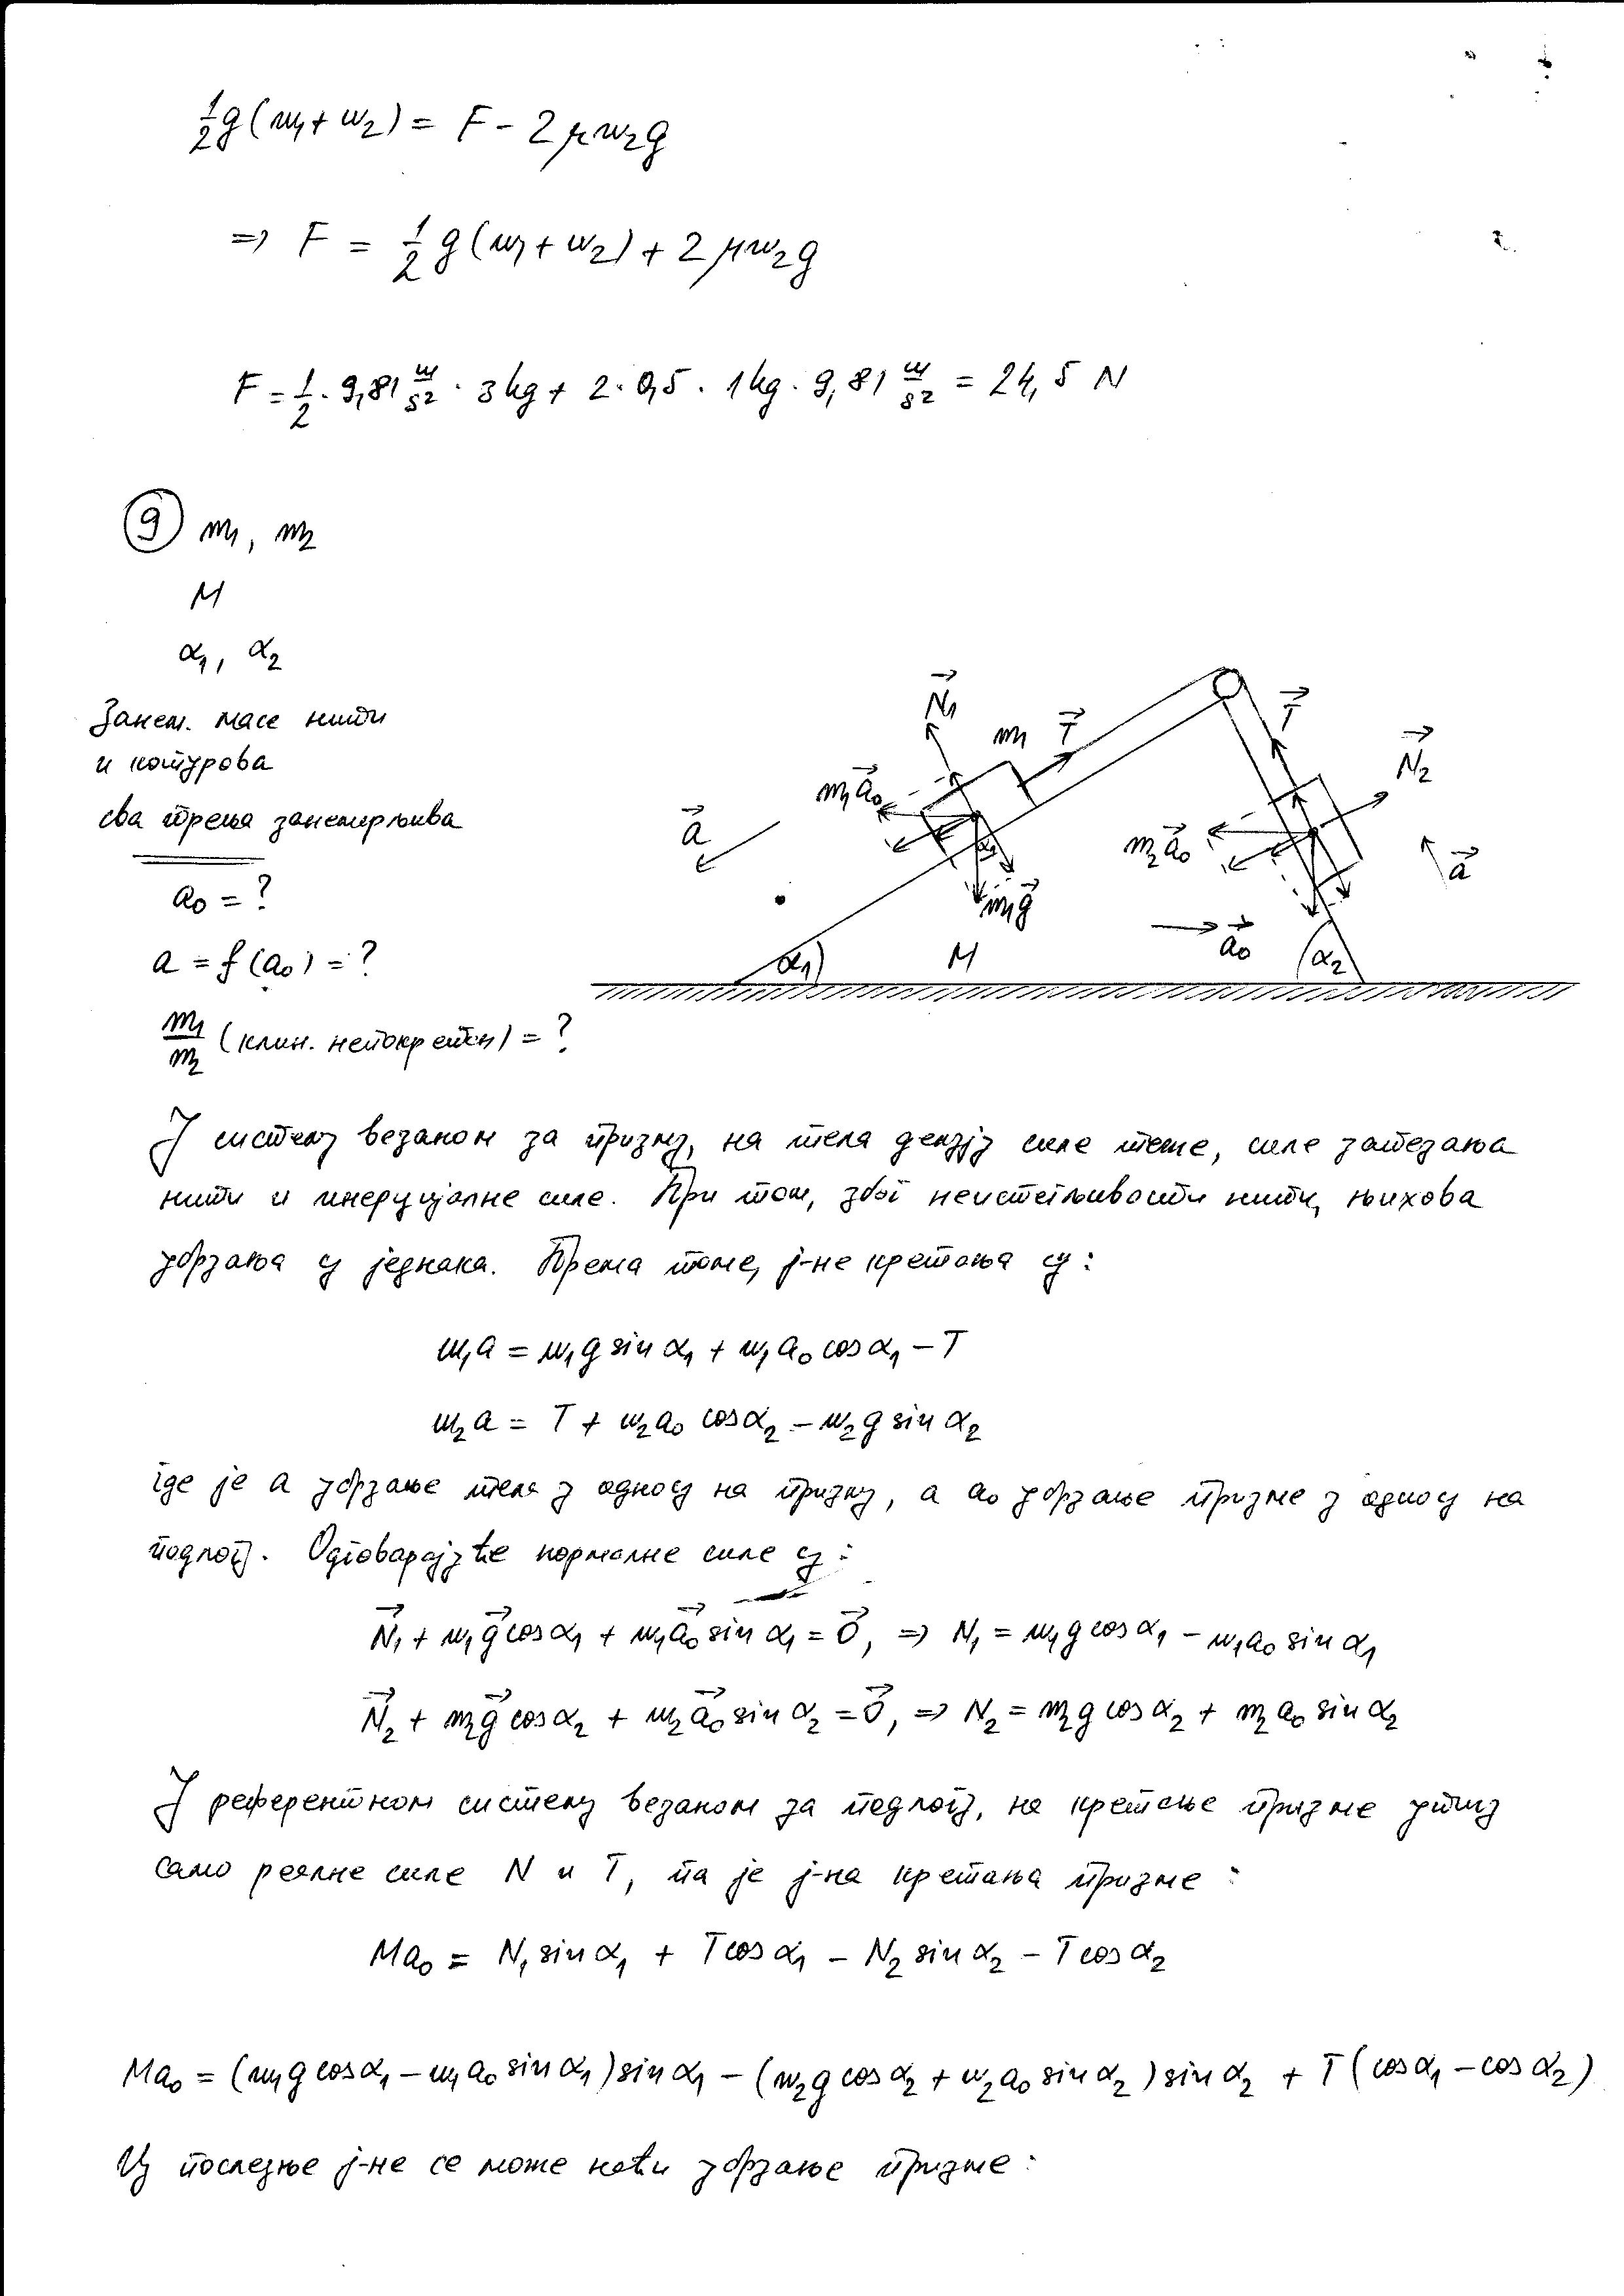 ½g(m₁+m₂) = F - 2μm₂g
=> F = ½ g(m₁+m₂) + 2μm₂g
F = ½ · 9,81 m/s² · 3kg + 2 · 0,5 · 1kg · 9,81 m/s² = 24,5 N
9 m₁, m₂
M
α₁, α₂
Занем. масе нити
и котурова
сва трења занемарљива
a₀ = ?
a = f(a₀) = ?
m₁/m₂ (клин. непокретан) = ?
N⃗₁
m₁
T⃗
T⃗
N⃗₂
m₁a⃗₀
a⃗
m₂a⃗₀
a⃗
α₁
m₁g⃗
α₁
M
a⃗₀
α₂
У систему везаном за призму, на тела делују силе теже, силе затезања
нити и инерцијалне силе. При том, због неистегљивости нити, њихова
убрзања су једнака. Према томе, ј-не кретања су:
m₁a = m₁g sin α₁ + m₁a₀ cos α₁ - T
m₂a = T + m₂a₀ cos α₂ - m₂g sin α₂
где је a убрзање тела у односу на призму, а a₀ убрзање призме у односу на
подлогу. Одговарајуће нормалне силе су:
N⃗₁ + m₁g⃗ cos α₁ + m₁a⃗₀ sin α₁ = 0⃗, => N₁ = m₁g cos α₁ - m₁a₀ sin α₁
N⃗₂ + m₂g⃗ cos α₂ + m₂a⃗₀ sin α₂ = 0⃗, => N₂ = m₂g cos α₂ + m₂a₀ sin α₂
У референтном систему везаном за подлогу, на кретање призме утичу
само реалне силе N и T, па је ј-на кретања призме:
Ma₀ = N₁ sin α₁ + T cos α₁ - N₂ sin α₂ - T cos α₂
Ma₀ = (m₁g cos α₁ - m₁a₀ sin α₁) sin α₁ - (m₂g cos α₂ + m₂a₀ sin α₂) sin α₂ + T (cos α₁ - cos α₂)
Из последње ј-не се може наћи убрзање призме: